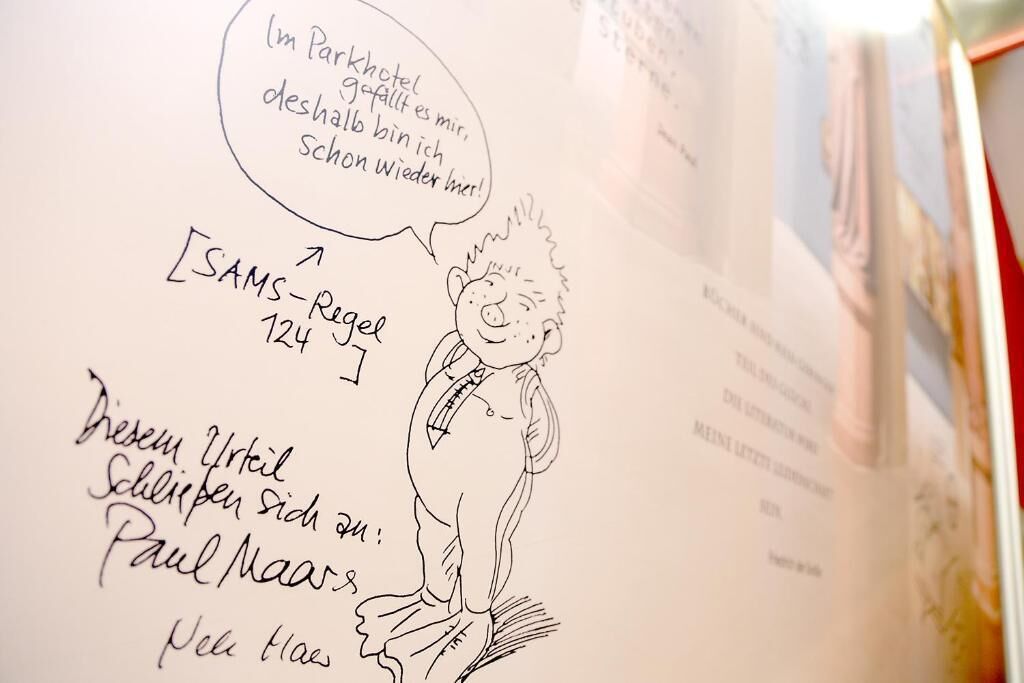 Im Parkhotel
gefällt es mir,
deshalb bin ich
schon wieder hier!
[SAMS-Regel
124]
Diesem Urteil
schließen sich an:
Paul Maar &
Sterne.
Jean Paul
BÜCHER SIND KEIN GERINGER
TEIL DES GLÜCKS.
DIE LITERATUR WIRD
MEINE LETZTE LEIDENSCHAFT
SEIN.
Friedrich der Große